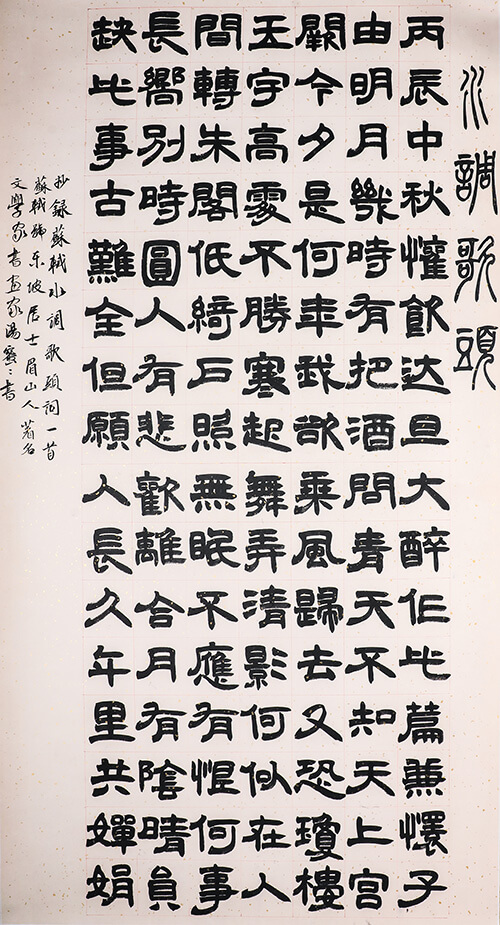 水調歌頭
丙辰中秋懽飲达旦大醉作此篇兼懷子
由明月幾時有把酒問青天不知天上宮
闕今夕是何年我欲乘風歸去又恐瓊樓
玉宇高處不勝寒起舞弄清影何似在人
間轉朱閣低綺戶照無眠不應有恨何事
長嚮別時圓人有悲歡離合月有陰晴員
缺此事古難全但願人長久千里共嬋娟
抄錄蘇軾水調歌頭詞一首
蘇軾东坡居士眉山人著名
文學家書画家湯書